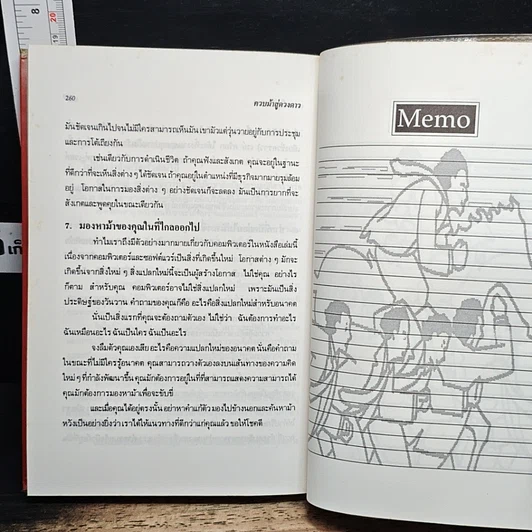 8
20
19
260
ควบม้าสู่ดวงดาว
มันชัดเจนเกินไปจนไม่มีใครสามารถเห็นมัน เขามัวแต่วุ่นวายอยู่กับการประชุม
และการโต้เถียงกัน
เช่นเดียวกับการดำเนินชีวิต ถ้าคุณฟังและสังเกต คุณจะอยู่ในฐานะ
ที่ดีกว่าที่จะเห็นสิ่งต่าง ๆ ได้ชัดเจน ถ้าคุณอยู่ในตำแหน่งที่มีธุรกิจมากมายรุมล้อม
อยู่ โอกาสในการมองสิ่งต่าง ๆ อย่างชัดเจนก็จะลดลง มันเป็นการยากที่จะ
สังเกตและพูดคุยในขณะเดียวกัน
7. มองหาม้าของคุณในที่ไกลออกไป
ทำไมเราถึงมีตัวอย่างมากมายเกี่ยวกับคอมพิวเตอร์ในหนังสือเล่มนี้
เนื่องจากคอมพิวเตอร์และซอฟต์แวร์เป็นสิ่งที่เกิดขึ้นใหม่ โอกาสต่าง ๆ มักจะ
เกิดขึ้นจากสิ่งใหม่ ๆ สิ่งแปลกใหม่นี้จะเป็นผู้สร้างโอกาส ไม่ใช่คุณ อย่างไร
ก็ตาม สำหรับคุณ คอมพิวเตอร์อาจไม่ใช่สิ่งแปลกใหม่ เพราะมันเป็นสิ่ง
ประดิษฐ์ของวันวาน คำถามของคุณก็คือ อะไรคือสิ่งแปลกใหม่สำหรับอนาคต
นั่นเป็นสิ่งแรกที่คุณจะต้องถามตัวเอง ไม่ใช่ว่า ฉันต้องการทำอะไร
ฉันเหมือนอะไร ฉันเป็นใคร ฉันเป็นอะไร
จงลืมตัวคุณเองเสีย อะไรคือความแปลกใหม่ของอนาคต นั่นคือคำถาม
ในขณะที่ไม่มีใครรู้อนาคต คุณสามารถวางตัวเองลงบนเส้นทางของความคิด
ใหม่ ๆ ที่กำลังพัฒนาขึ้น คุณมักต้องการอยู่ในที่ที่สามารถแสดงความสามารถได้
คุณมักต้องการมองหาม้าเพื่อจะขับขี่
และเมื่อคุณได้อยู่ตรงนั้น อย่าหาคำแก้ตัว มองไปข้างนอกและค้นหาม้า
หวังเป็นอย่างยิ่งว่า เราได้ให้แนวทางที่ดีกว่าแก่คุณแล้ว ขอให้โชคดี
Memo